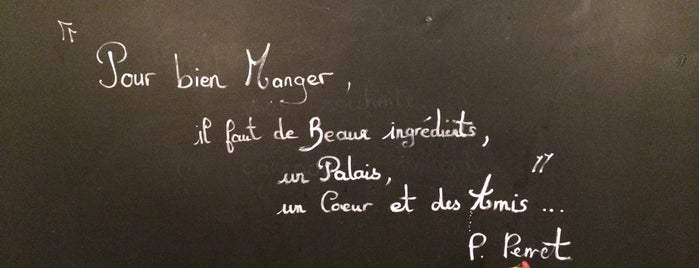 " Pour bien Manger,
il faut de Beaux ingrédients,
un Palais,
un Coeur et des Amis ... "
P. Perret